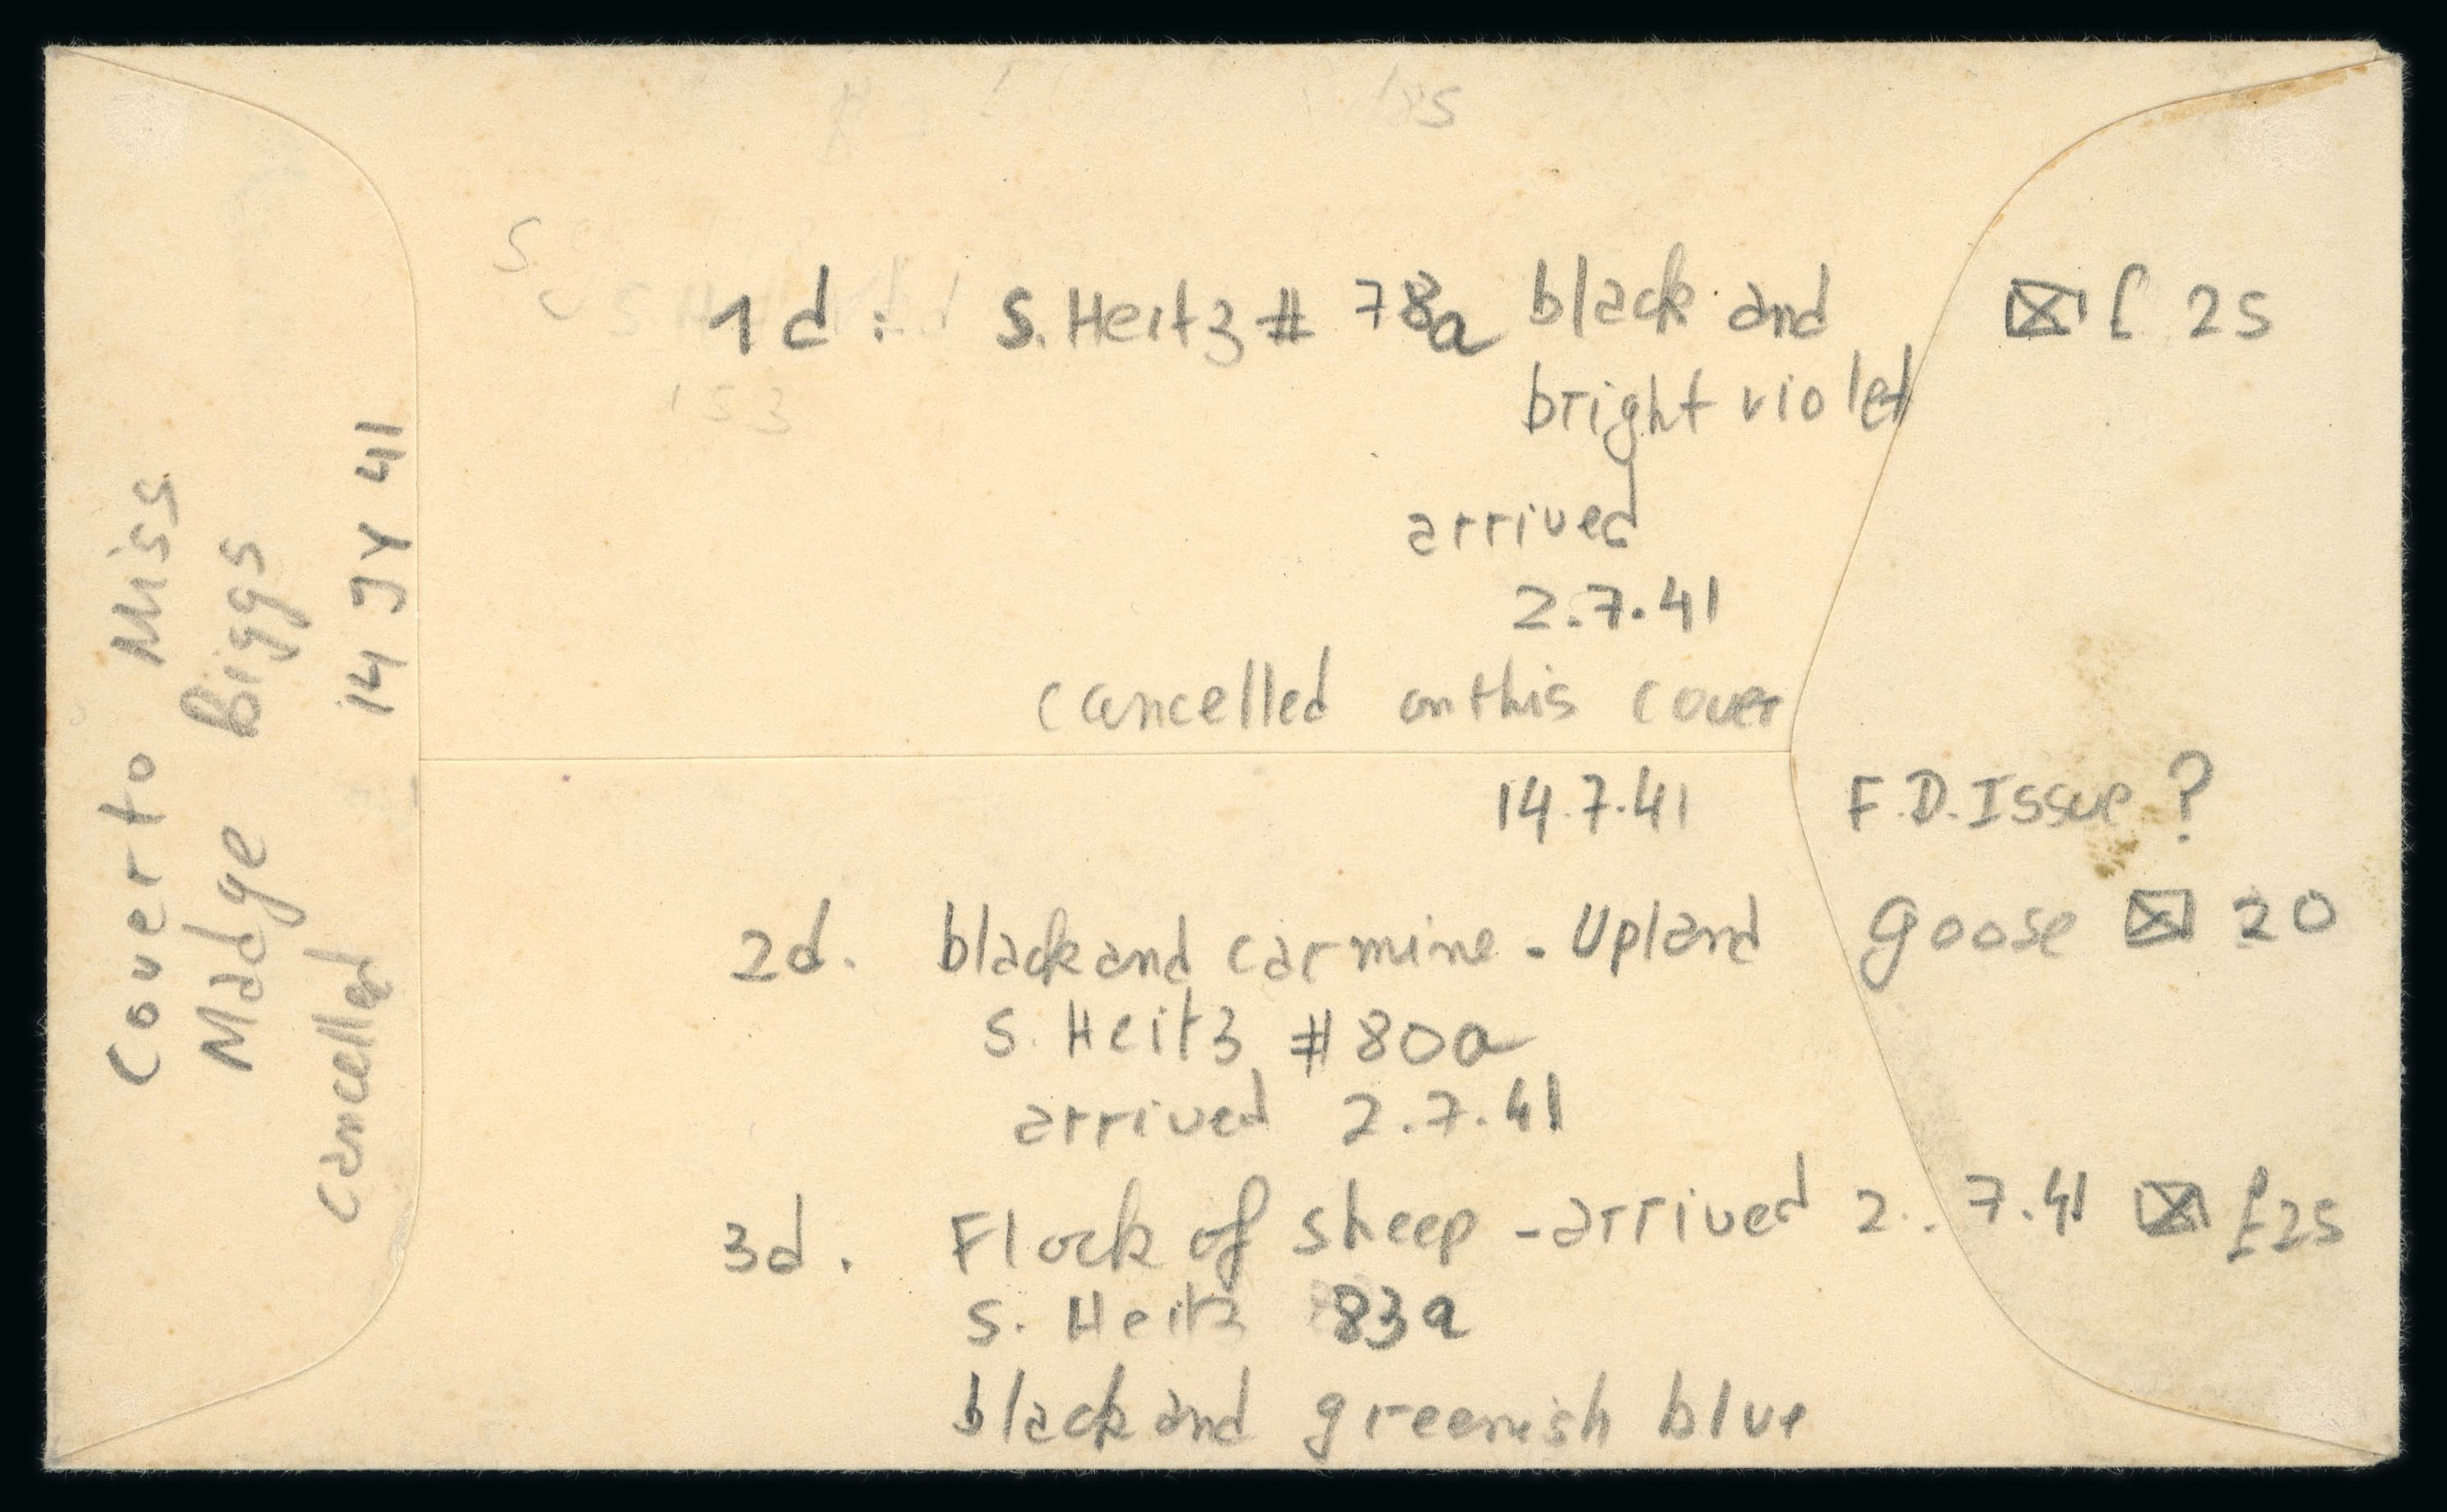 185
S
1d: S. Heitz # 78a black and £ 25
bright violet
153
arrived
2.7.41
cancelled on this cover
14.7.41 F.D. Issue ?
2d. black and carmine - Upland Goose 20
S. Heitz #80a
arrived 2.7.41
3d. Flock of sheep - arrived 2..7.41 £25
S. Heitz 83a
black and greenish blue
Cover to Miss
Madge Biggs
Cancelled 14 JY 41